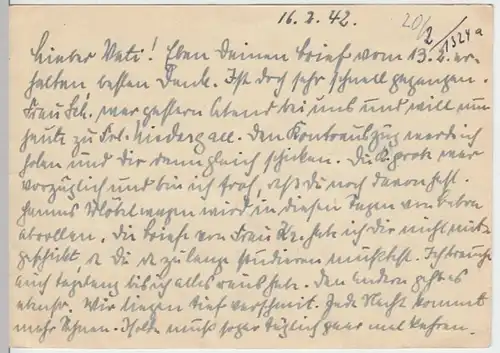 16.2.42. 20/2 1324a
Lieber Vati! Eben Deinen Brief vom 13.2. er-
halten, besten Dank. Ist doch sehr schnell gegangen.
Frau Sch. war gestern Abend bei uns und will nun
heute zu Frl. Niedergall. Den Kontoauszug werde ich
holen und dir dann gleich schicken. Die brote war
vorzüglich und bin ich froh, daß du noch davon hast.
Hannes Möbelwagen wird in diesen Tagen von
abrollen. Die Briefe von Frau Kz. habe ich dir nicht mit-
geschickt, da du zu lange studieren müßtest. Ich brauche
auch tagelang bis ich alles raus habe. Den andern geht es
ebenso. Wir liegen tief verschneit. Jede Nacht kommt
mehr Schnee. Isolde muß sogar täglich paar mal kehren.